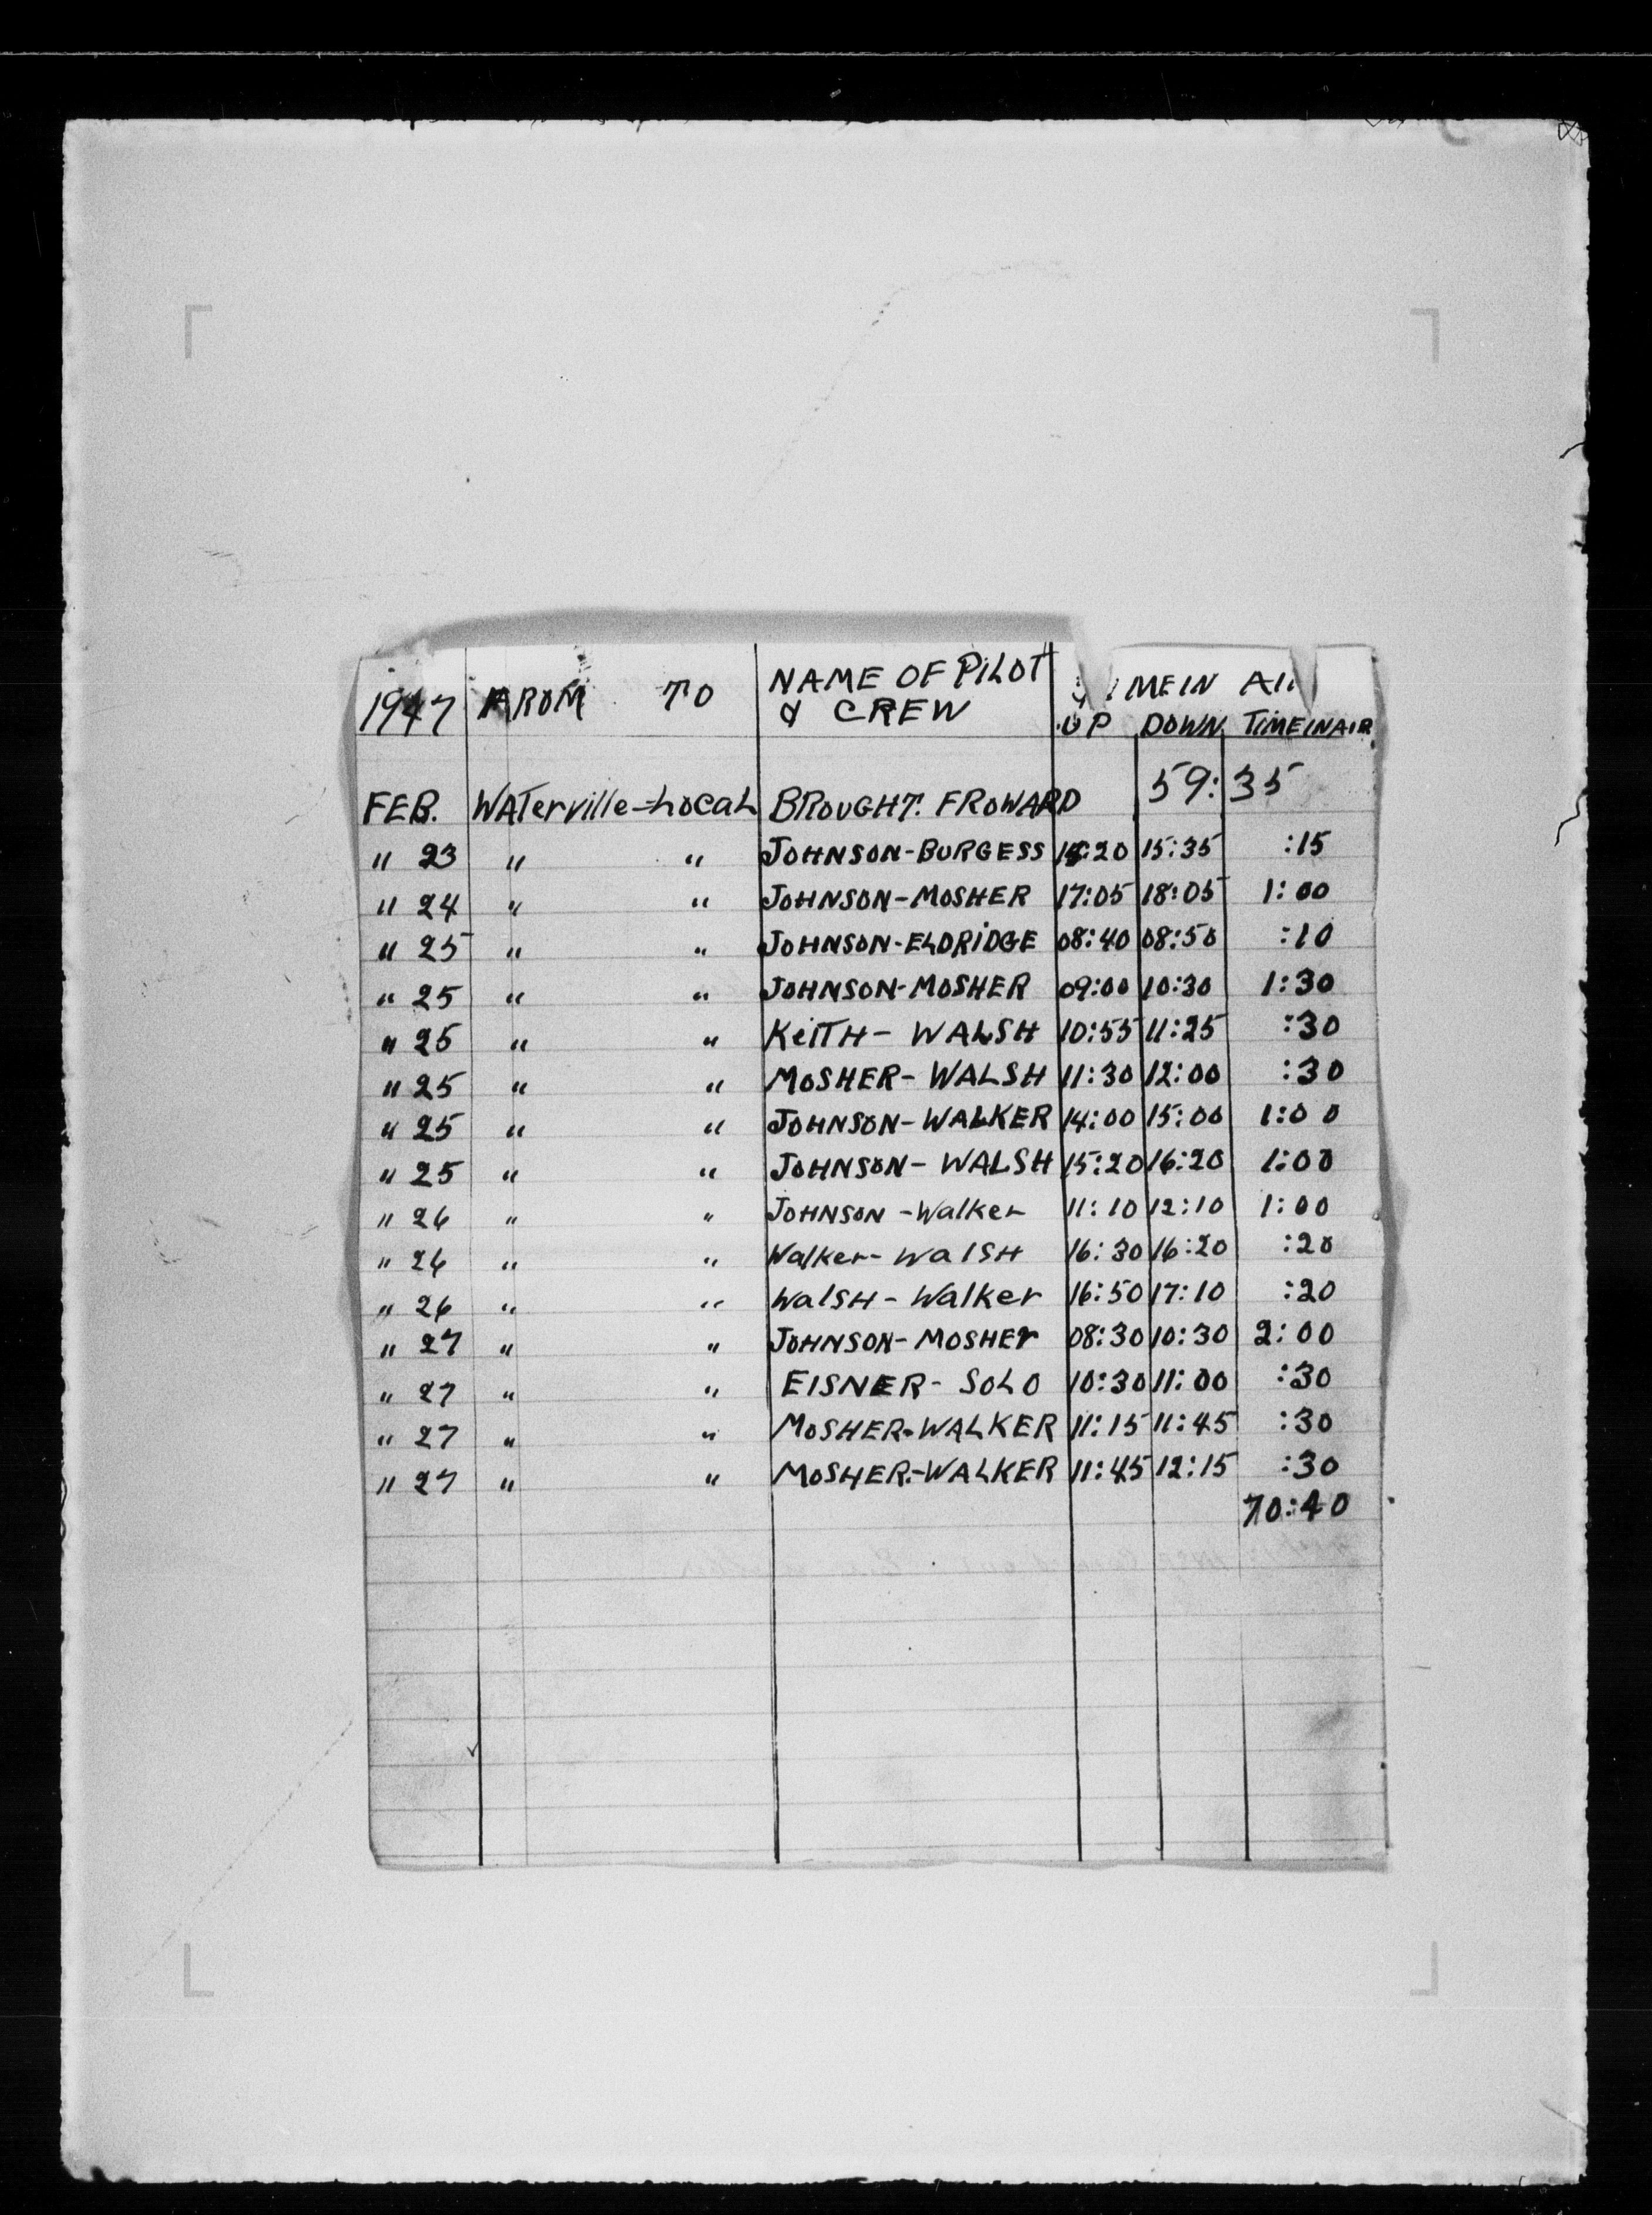 1947 FROM TO NAME OF PILOT
& CREW MEIN
UP DOWN TIMEINAIR
FEB. WATerville-LocaL BROUGHT. FROWARD 59:35
" 23 " " JOHNSON-BURGESS :20 15:35 :15
" 24 " " JOHNSON-MOSHER 17:05 18:05 1:00
" 25 " " JOHNSON-ELDRiDGE 08:40 08:50 :10
" 25 " " JOHNSON-MOSHER 09:00 10:30 1:30
" 25 " " KeiTH- WALSH 10:55 11:25 :30
" 25 " " MOSHER- WALSH 11:30 12:00 :30
" 25 " " JOHNSON-WALKER 14:00 15:00 1:00
" 25 " " JOHNSON- WALSH 15:20 16:20 1:00
" 26 " " JOHNSON -Walker 11:10 12:10 1:00
" 26 " " Walker- WalSH 16:30 16:20 :20
" 26 " " WalSH- Walker 16:50 17:10 :20
" 27 " " JOHNSON-MOSHEr 08:30 10:30 2:00
" 27 " " EISNER- SOLO 10:30 11:00 :30
" 27 " " MOSHER-WALKER 11:15 11:45 :30
" 27 " " MOSHER.-WALKER 11:45 12:15 :30
70:40